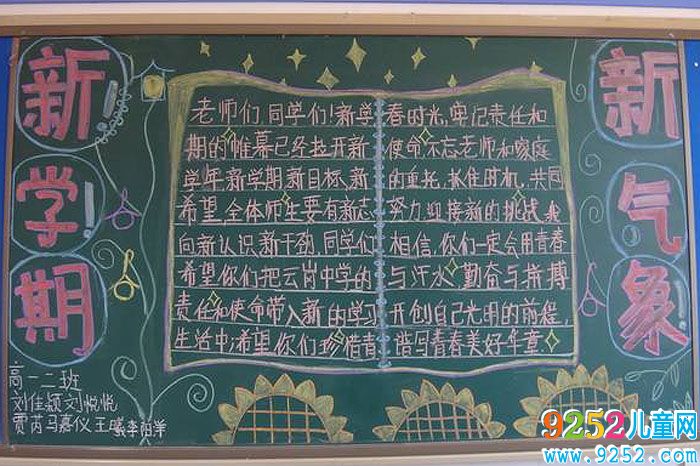 新学期
新气象
老师们同学们!新学
期的帷幕已经拉开新
学年新学期新目标、新
希望,全体师生要有新志
向新认识新干劲,同学们
希望你们把云岗中学的
责任和使命带入新的学习
生活中,希望你们珍惜青
春时光,牢记责任和
使命不忘老师和家庭
的重托,抓住时机,共同
努力,迎接新的挑战,我
相信,你们一定会用青春
与汗水,勤奋与拼搏
开创自己光明的前程,
谱写青春美好年章
高一二班
刘佳颖刘悦悦
贾芮马嘉仪王曦李阳洋
9252儿童网
www.9252.com